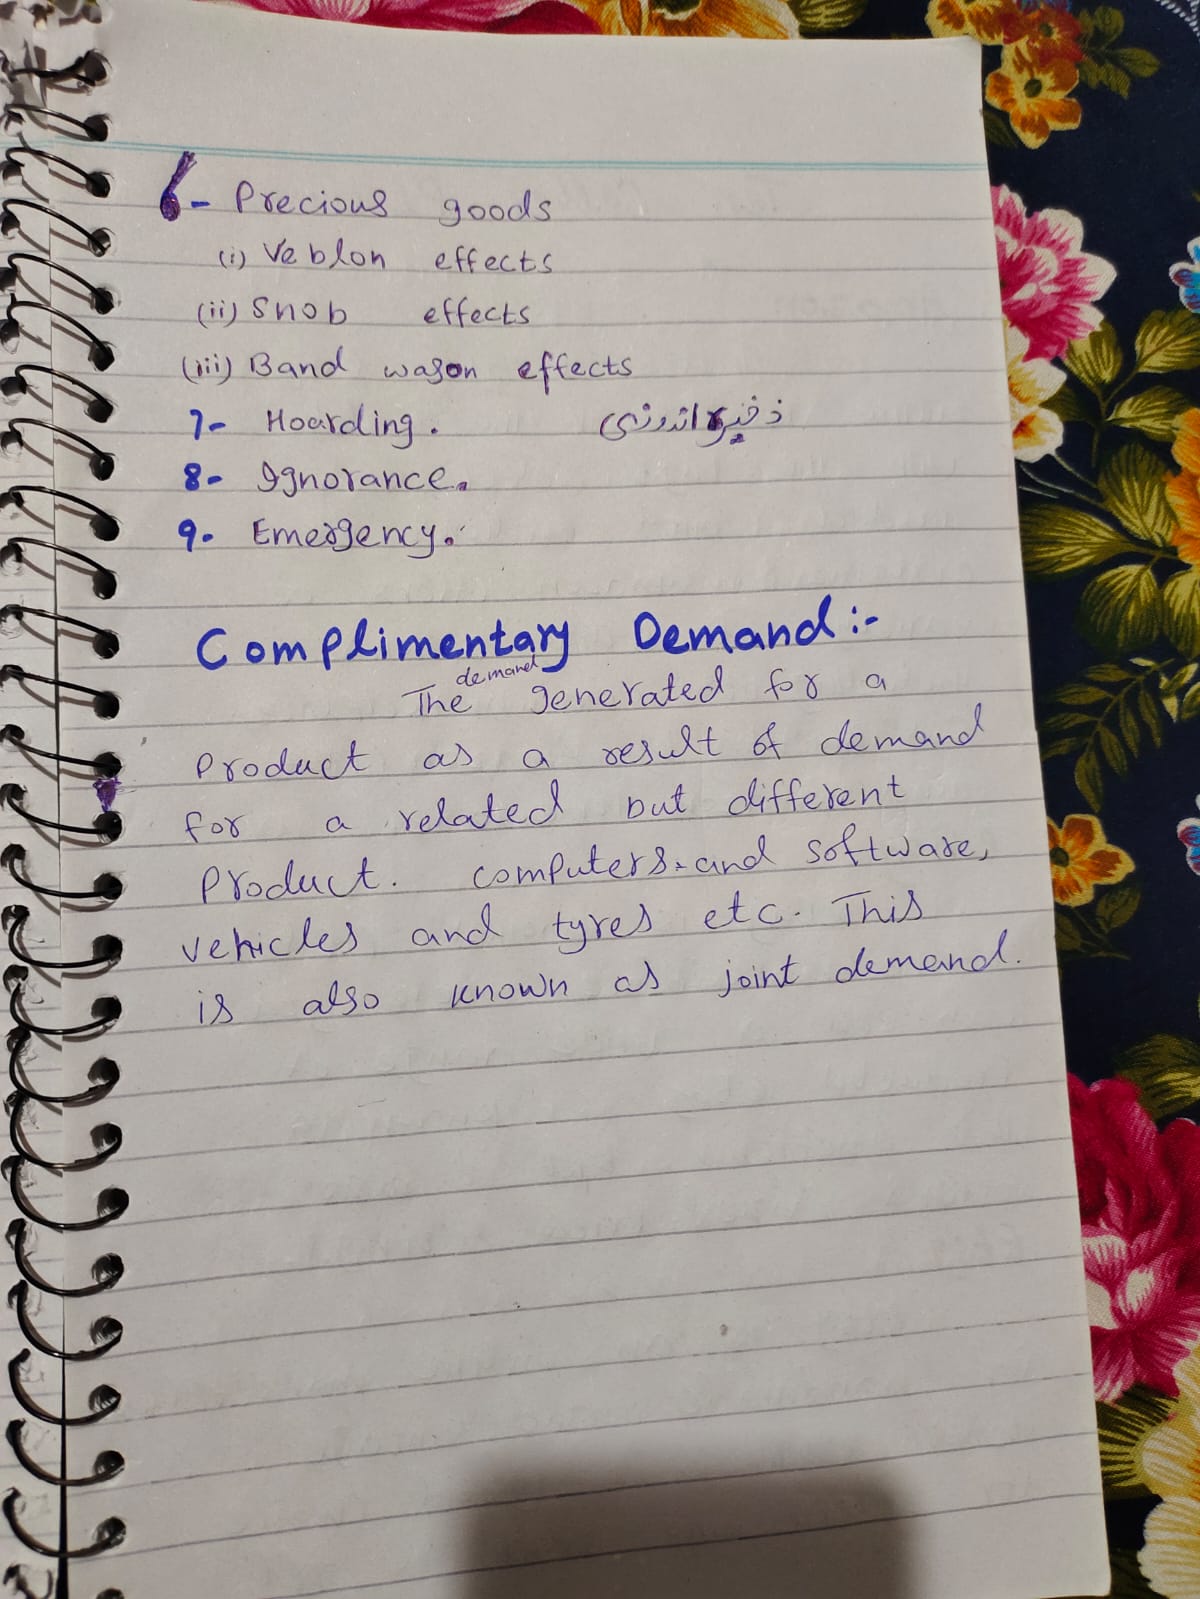 6- Precious goods
(i) Veblon effects
(ii) Snob effects
(iii) Band wagon effects
7- Hoarding. ذخیرہ اندوزی
8- Ignorance.
9- Emergency.
Complimentary Demand:-
demand
The generated for a
Product as a result of demand
for a related but different
Product. computers and software,
vehicles and tyres etc. This
is also known as joint demand.